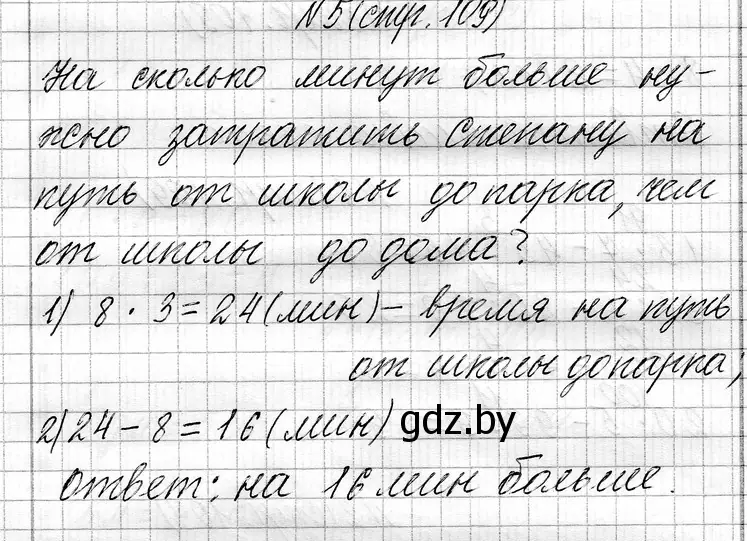 №5 (стр. 109)
На сколько минут больше ну-
жно затратить Степану на
путь от школы до парка, чем
от школы до дома?
1) 8 · 3 = 24 (мин) – время на путь
от школы до парка;
2) 24 – 8 = 16 (мин)
gdz.by
Ответ: на 16 мин больше.